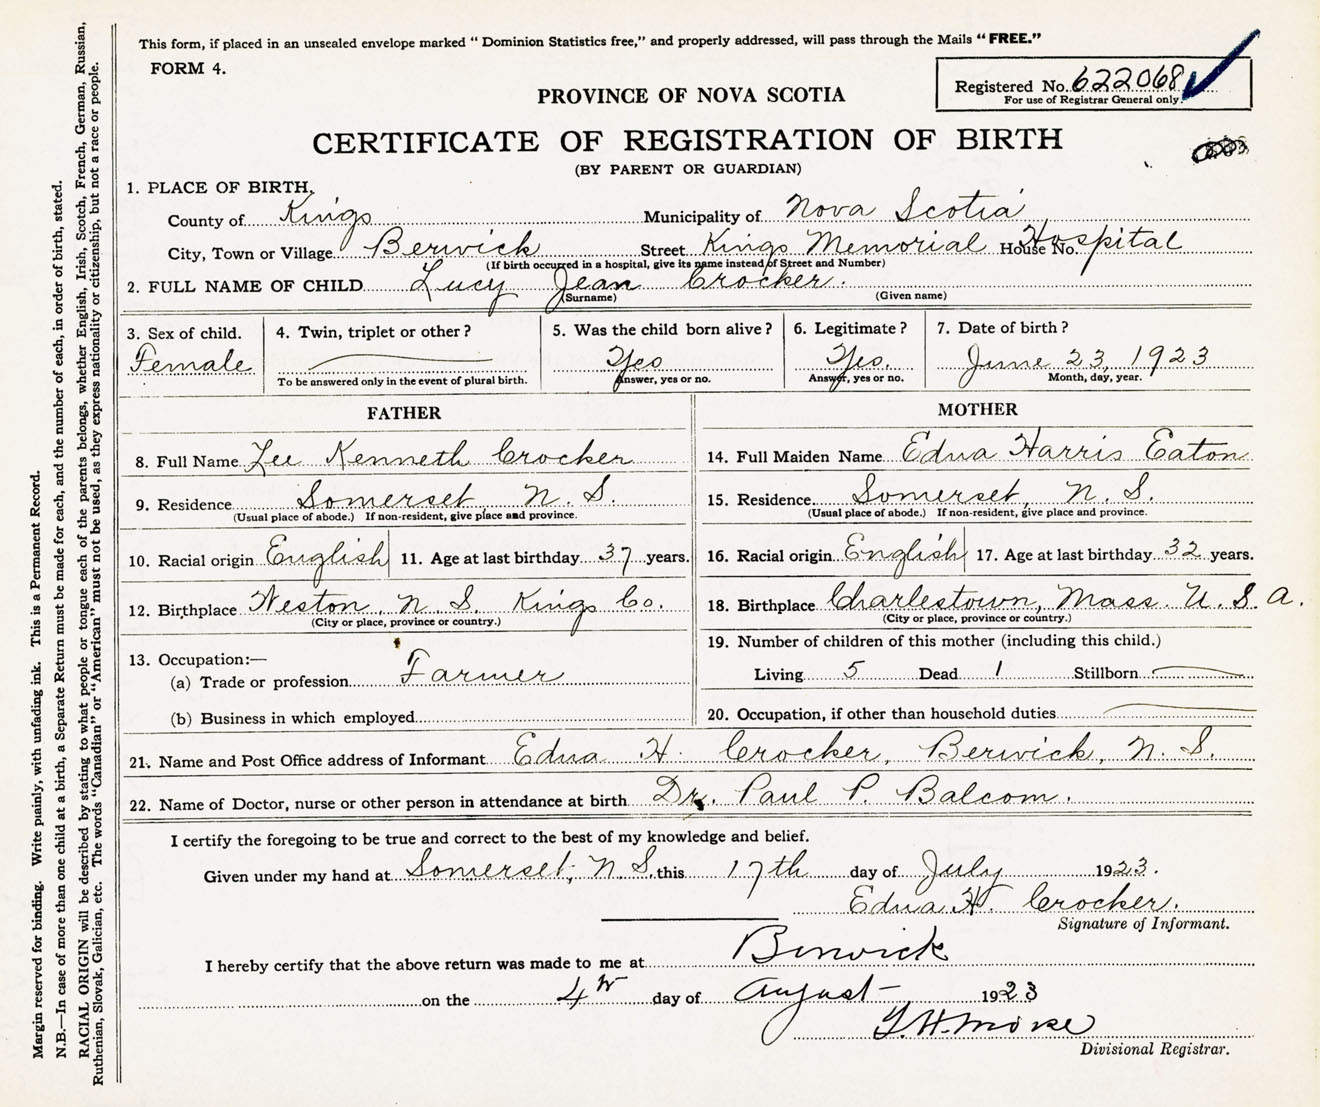 This form, if placed in an unsealed envelope marked “ Dominion Statistics free,” and properly addressed, will pass through the Mails “ FREE.”
FORM 4.
Registered No. 622068
For use of Registrar General only.
PROVINCE OF NOVA SCOTIA
CERTIFICATE OF REGISTRATION OF BIRTH
(BY PARENT OR GUARDIAN)
1. PLACE OF BIRTH,
County of Kings Municipality of Nova Scotia
City, Town or Village Berwick Street Kings Memorial House No. Hospital
(If birth occurred in a hospital, give its name instead of Street and Number)
2. FULL NAME OF CHILD Lucy Jean Crocker.
(Surname) (Given name)
3. Sex of child. 4. Twin, triplet or other ? 5. Was the child born alive ? 6. Legitimate ? 7. Date of birth ?
Female Yes Yes. June 23, 1923
To be answered only in the event of plural birth. Answer, yes or no. Answer, yes or no. Month, day, year.
FATHER
8. Full Name Lee Kenneth Crocker
9. Residence Somerset, N. S.
(Usual place of abode.) If non-resident, give place and province.
10. Racial origin English 11. Age at last birthday 37 years.
12. Birthplace Weston, N. S. Kings Co.
(City or place, province or country.)
13. Occupation:—
(a) Trade or profession Farmer
(b) Business in which employed
MOTHER
14. Full Maiden Name Edna Harris Eaton
15. Residence Somerset, N. S.
(Usual place of abode.) If non-resident, give place and province.
16. Racial origin English 17. Age at last birthday 32 years.
18. Birthplace Charlestown, Mass. U. S. A.
(City or place, province or country.)
19. Number of children of this mother (including this child.)
Living 5 Dead 1 Stillborn
20. Occupation, if other than household duties
21. Name and Post Office address of Informant Edna H. Crocker, Berwick, N. S.
22. Name of Doctor, nurse or other person in attendance at birth Dr. Paul P. Balcom.
I certify the foregoing to be true and correct to the best of my knowledge and belief.
Given under my hand at Somerset, N. S. this 17th day of July 1923.
Edna H. Crocker.
Signature of Informant.
I hereby certify that the above return was made to me at Berwick
on the 4th day of August 1923
Morse
Divisional Registrar.
Margin reserved for binding. Write plainly, with unfading ink. This is a Permanent Record.
N.B.—In case of more than one child at a birth, a Separate Return must be made for each, and the number of each, in order of birth, stated.
RACIAL ORIGIN will be described by stating to what people or tongue each of the parents belongs, whether English, Irish, Scotch, French, German, Russian,
Ruthenian, Slovak, Galician, etc. The words “Canadian” or “American” must not be used, as they express nationality or citizenship, but not a race or people.